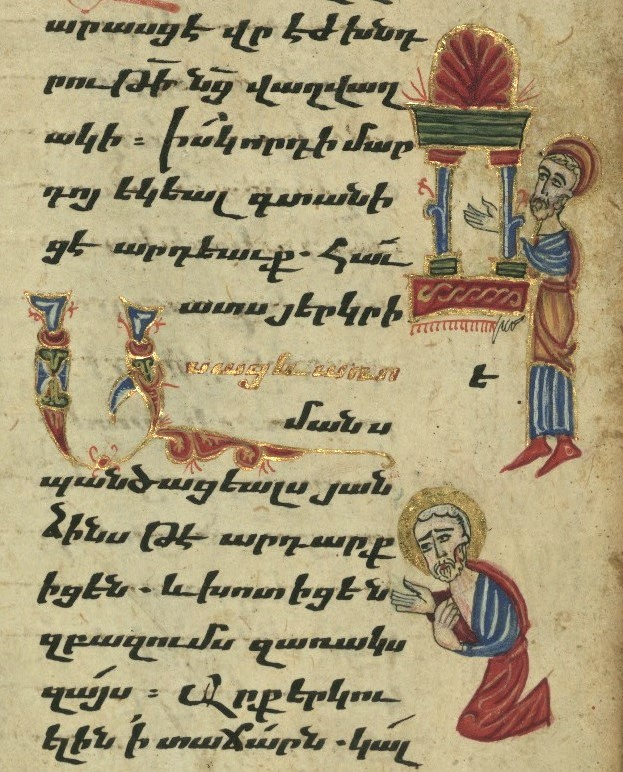 արասցէ վրէժխնդ
րութի՜ նց՜ վաղվաղ
ակի : Իսկ որդի մար
դոյ եկեալ գտանի
ցէ արդեաւք. Հաւ
ատս յերկրի
Ասաց և առ ո
մանս
պանծացեալս յան
ձինս թէ արդարք
իցեն. և խոտիցեն
զբազումս զառակս
զայս : Արք երկու
ելին ՛ի տաճարն. կալ